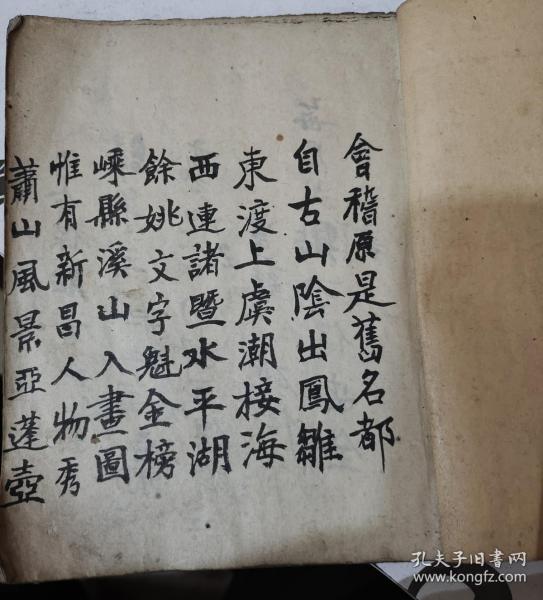 會稽原是舊名都
自古山陰出鳳雛
東渡上虞潮接海
西連諸暨水平湖
餘姚文字魁金榜
嵊縣溪山入畫圖
惟有新昌人物秀
蕭山風景亞蓬壺
孔夫子旧书网
www.kongfz.com